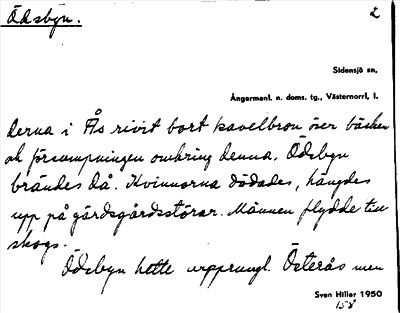 Ödsbyn.
2
Sidensjö sn.
Ångermanl. n. doms. tg., Västernorrl. l.
derna i Ås rivit bort kavelbron över bäcken
och försumpningen omkring denna. Ödsbyn
brändes då. Kvinnorna dödades, hängdes
upp på gärdsgårdsstörar. Männen flydde till
skogs.
Ödsbyn hette ursprungl. Österås men
Sven Hiller 1950
158